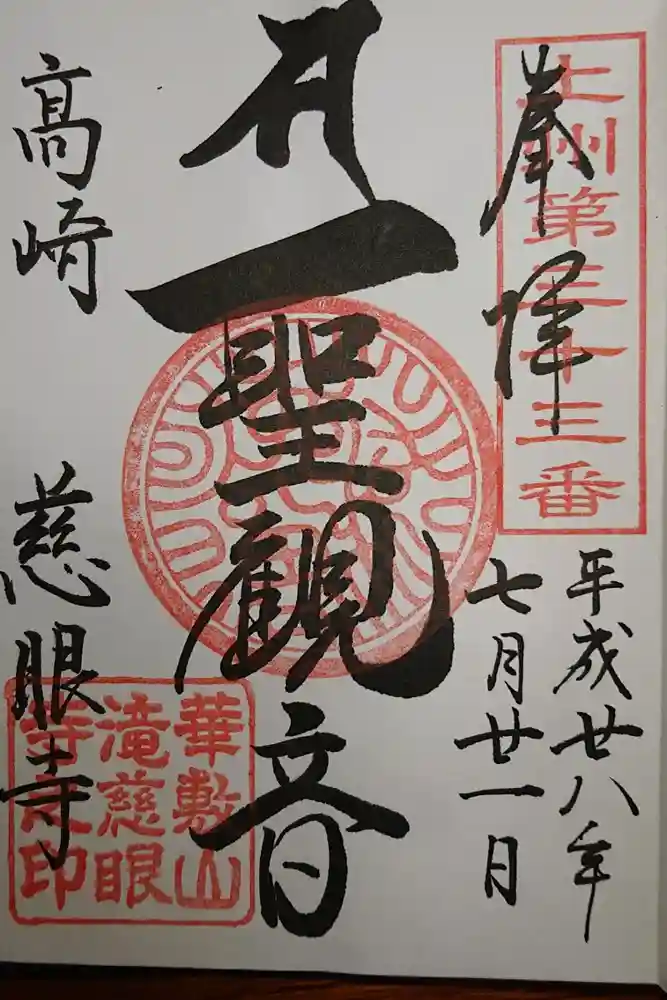 上州第三十三番
奉拝
平成廿八年
七月廿一日
一聖観音
高崎
慈眼寺
華敷山
滝慈眼
寺之印